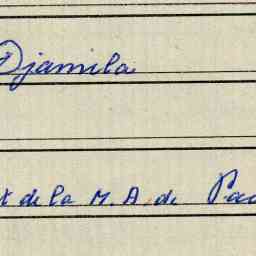 Djamila
t de la M. A. de Pac